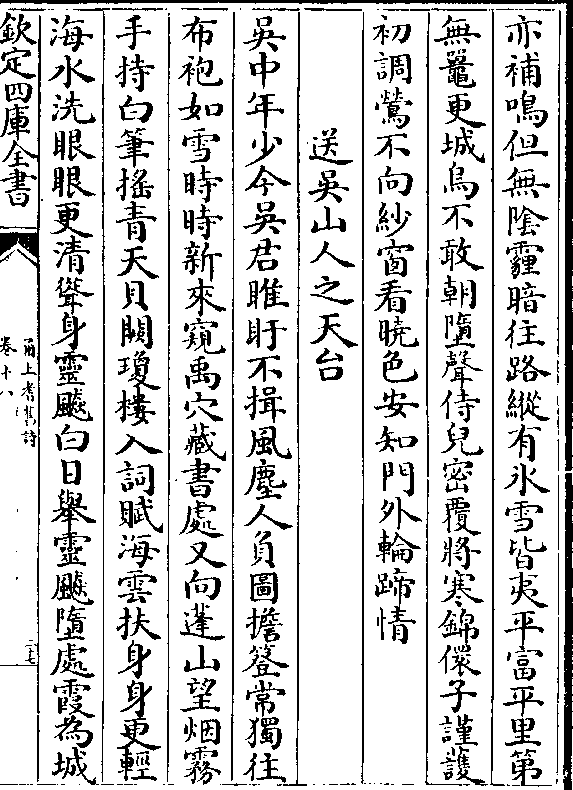 亦補鳴但無隂霾暗往路縱有氷雪皆夷平富平里第
無鼍更城烏不敢朝墮聲侍兒密覆將寒錦儇子謹䕶
初調鶯不向紗窗看曉色安知門外輪蹄情
送吳山人之天台
吳中年少今吳君睢盱不揖風塵人負圖擔簦常獨往
布袍如雪時時新來窺禹穴藏書處又向蓬山望烟霧
手持白筆揺青天貝闕瓊樓入詞賦海雲扶身身更輕
海水洗眼眼更清聳身靈飇白日舉靈飇墮處霞為城
欽定四庫全書
甬上耆舊詩
卷十八
二七